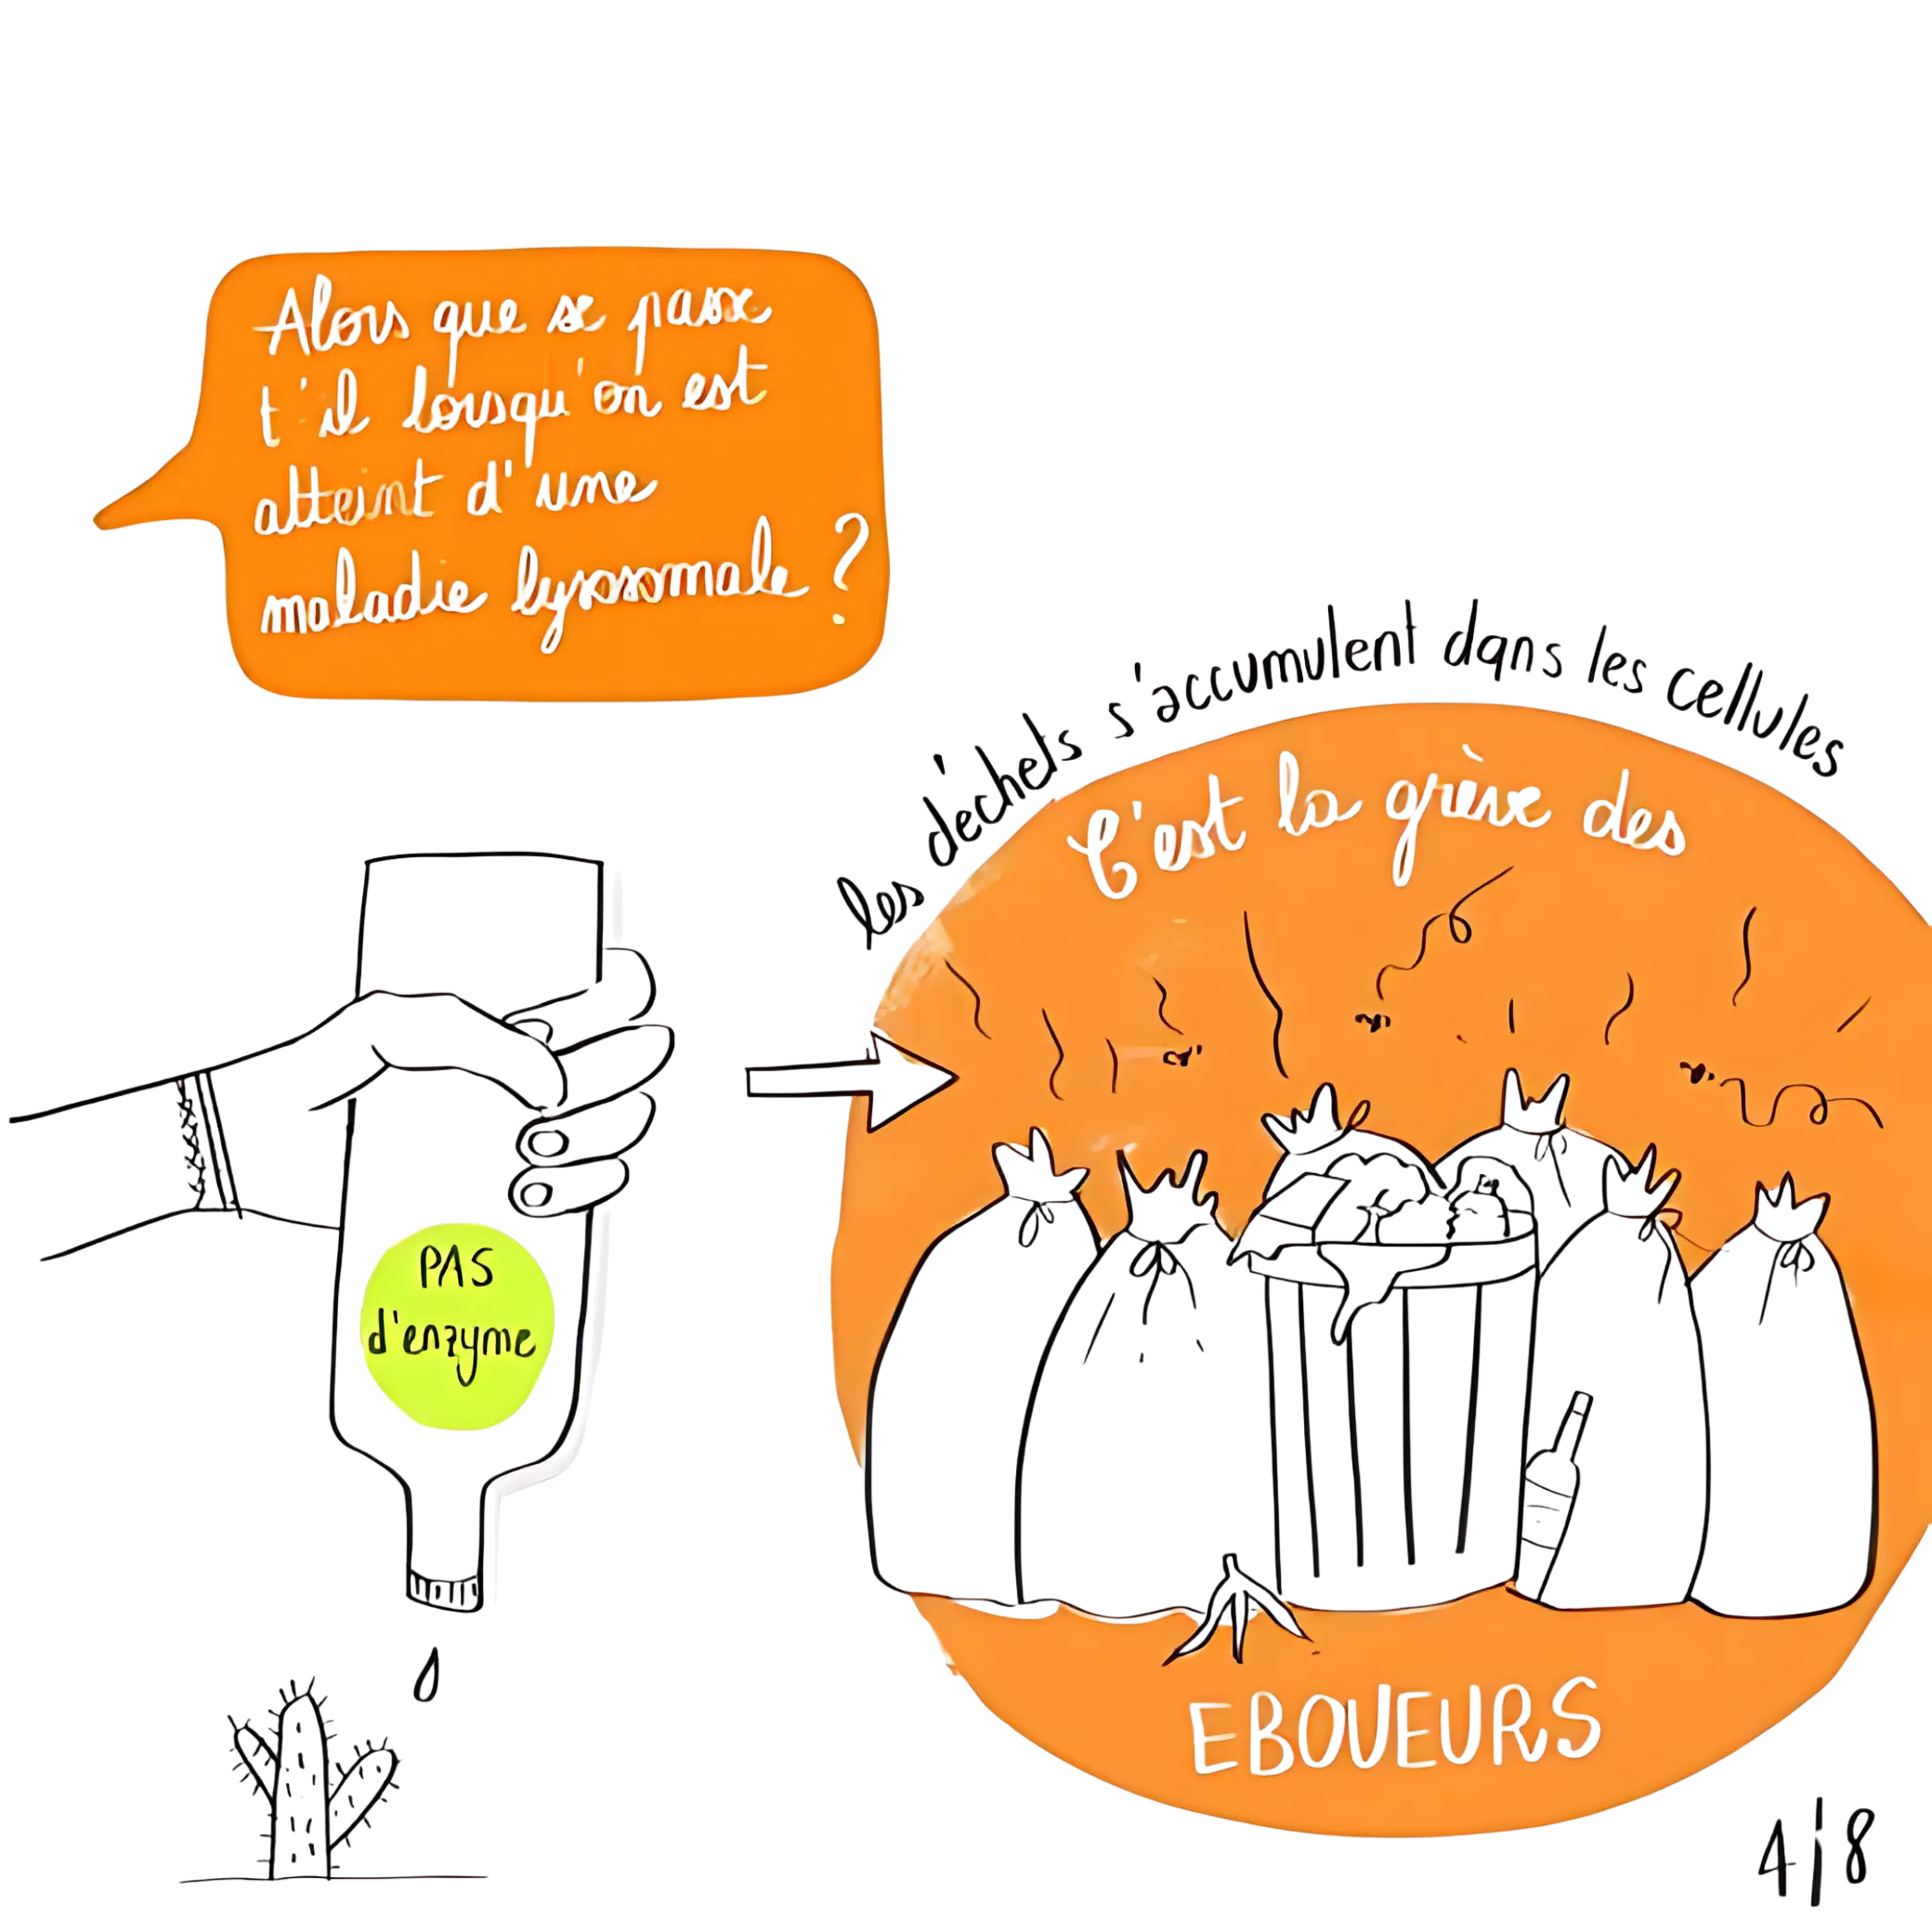 Alors que se passe
t'il lorsqu'on est
atteint d'une
maladie lysosomale ?
les déchets s'accumulent dans les cellules
C'est la grève des
EBOUEURS
PAS
d'enzyme
4|8